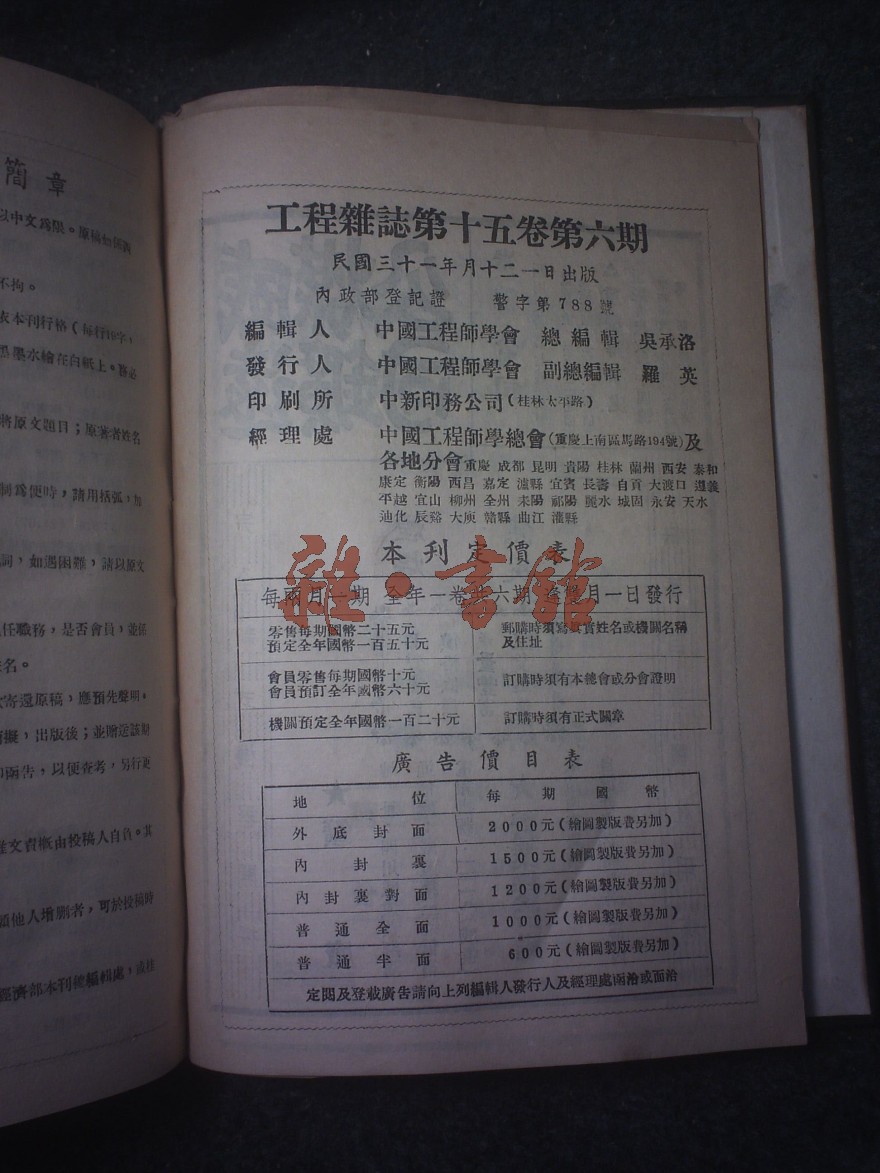 簡章
以中文為限。原稿如係西
不拘。
依本刊行格（每行40字，
黑墨水繪在白紙上。務必
將原文題目；原著者姓名
時，請用括弧，加
詞，如遇困難，請以原文
任職務，是否會員，並係
姓名。
寄還原稿，應預先聲明。
擬，出版後；並贈送該期
函告，以便查考，另行更
文責概由投稿人自負。其
他人增删者，可於投稿時
經濟部本刊總編輯處，或桂
工程雜誌第十五卷第六期
民國三十一年月十二一日出版
內政部登記證 警字第788號
編輯人 中國工程師學會 總編輯 吳承洛
發行人 中國工程師學會 副總編輯 羅英
印刷所 中新印務公司（桂林太平路）
經理處 中國工程師學總會（重慶上南區馬路194號）及
各地分會 重慶 成都 昆明 貴陽 桂林 蘭州 西安 泰和
康定 衡陽 西昌 嘉定 瀘縣 宜賓 長壽 自貢 大渡口 遵義
平越 宜山 柳州 全州 耒陽 祁陽 麗水 城固 永安 天水
迪化 辰谿 大庾 贛縣 曲江 灌縣
本刊定價表
雜·書館
每兩月一期 全年一卷共六期 逢雙月一日發行
零售每期國幣二十五元
預定全年國幣一百五十元
郵購時須寫真實姓名或機關名稱
及住址
會員零售每期國幣十元
會員預訂全年國幣六十元
訂購時須有本總會或分會證明
機關預定全年國幣一百二十元
訂購時須有正式關章
廣告價目表
地位 每期國幣
外底封面 2000元（繪圖製版費另加）
內封裏 1500元（繪圖製版費另加）
內封裏對面 1200元（繪圖製版費另加）
普通全面 1000元（繪圖製版費另加）
普通半面 600元（繪圖製版費另加）
定閱及登載廣告請向上列編輯人發行人及經理處函洽或面洽